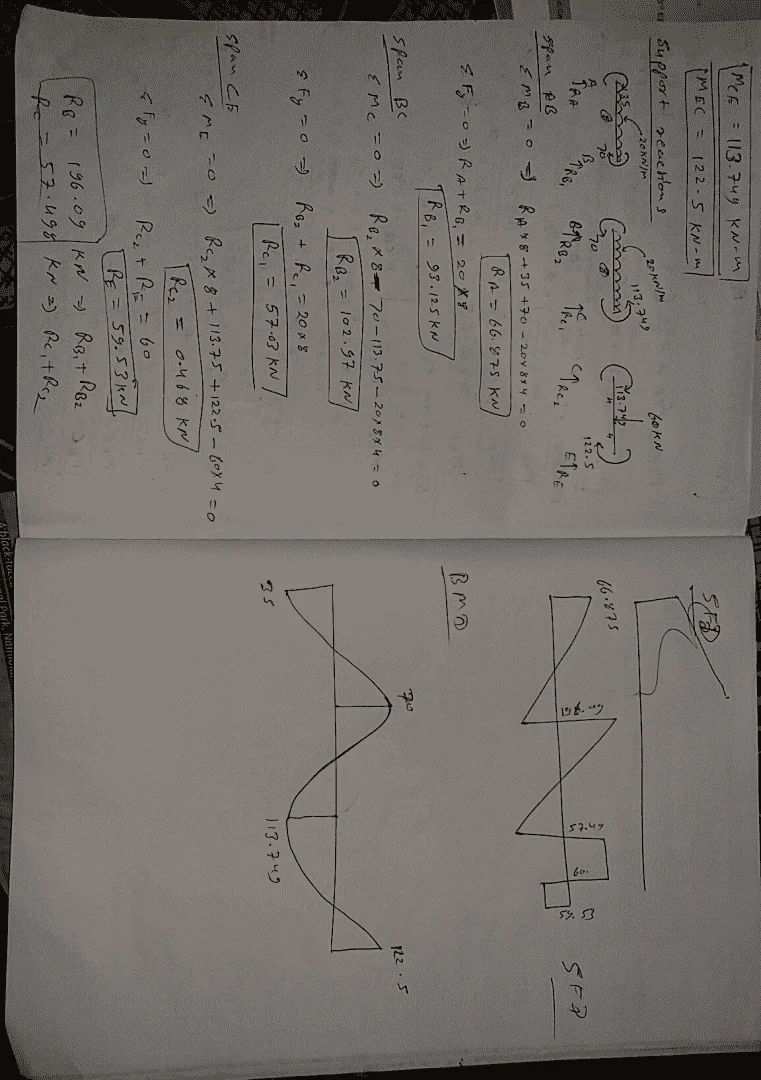 MCE = 113.749 KN-m
MEC = 122.5 KN-m
Support reactions
20KN/m
20KN/m
60KN
35
70
70
113.749
113.749
122.5
4
A
B
B
C
C
E
RA
RB1
RB2
RC1
RC2
RE
Span AB
Σ MB = 0 ⇒ RA×8+35+70-20×8×4=0
RA = 66.875 KN
Σ Fy = 0 ⇒ RA+RB1 = 20×8
RB1 = 93.125 KN
Span BC
Σ MC = 0 ⇒ RB2×8-70-113.75-20×8×4=0
RB2 = 102.97 KN
Σ Fy = 0 ⇒ RB2 + RC1 = 20×8
RC1 = 57.03 KN
Span CE
Σ ME = 0 ⇒ RC2×8+113.75+122.5-60×4=0
RC2 = 0.468 KN
Σ Fy = 0 ⇒ RC2 + RE = 60
RE = 59.53 KN
RB = 196.09 KN ⇒ RB1+RB2
RC = 57.498 KN ⇒ RC1+RC2
66.875
57.49
60
59.53
SFD
BMD
35
70
113.749
122.5